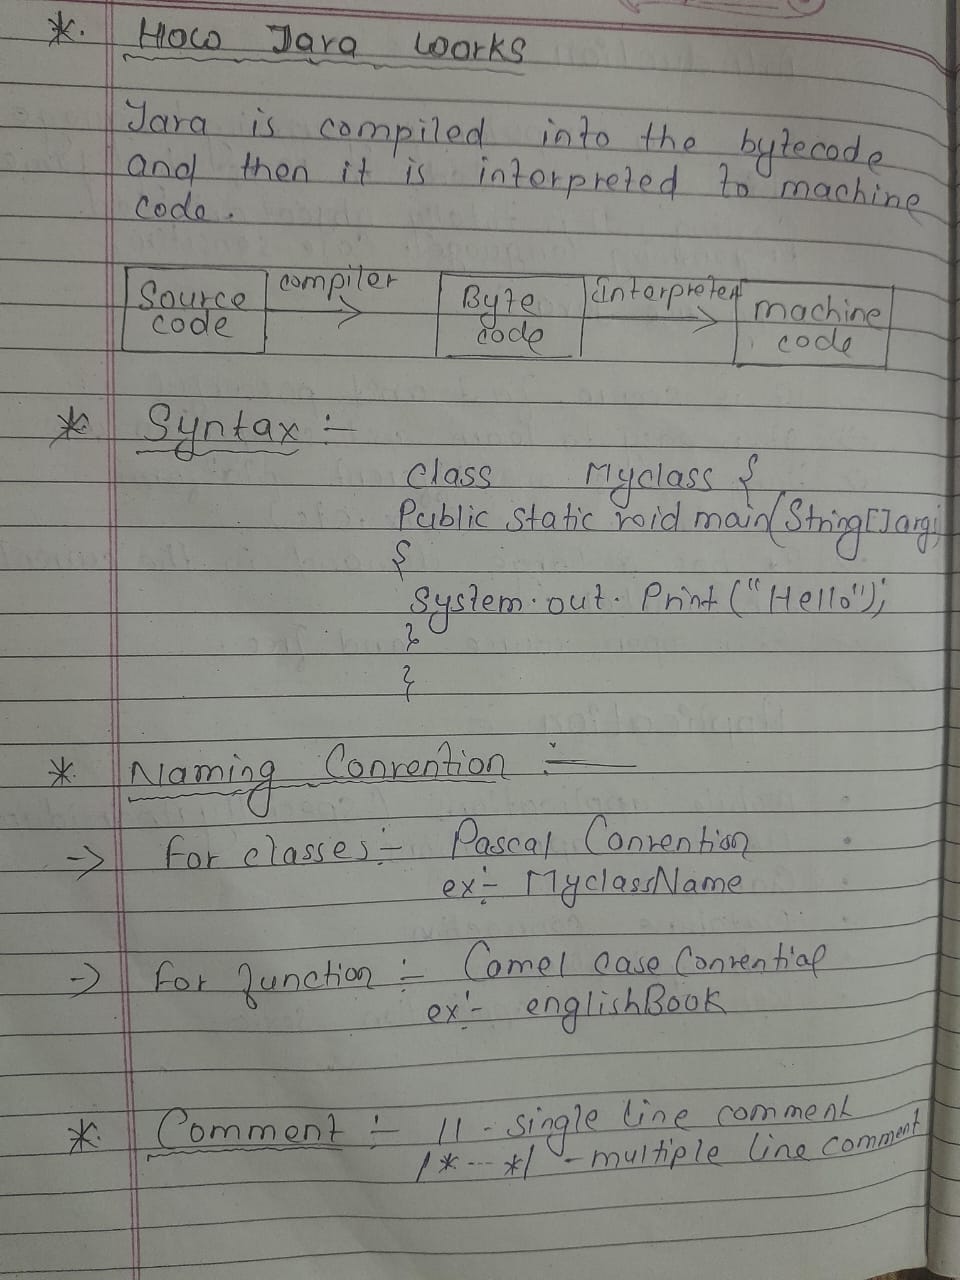 *. How Java works
Java is compiled into the bytecode
and then it is interpreted to machine
code.
Source code compiler Byte code interpreter machine code
* Syntax :-
class Myclass {
Public static void main(String[]args)
{
System.out.Print("Hello");
}
}
* Naming Convention :-
-> For classes :- Pascal Convention
ex :- MyclassName
-> For function :- Camel case Convential
ex :- englishBook
* Comment :- // - single line comment
/*---*/ - multiple line comment